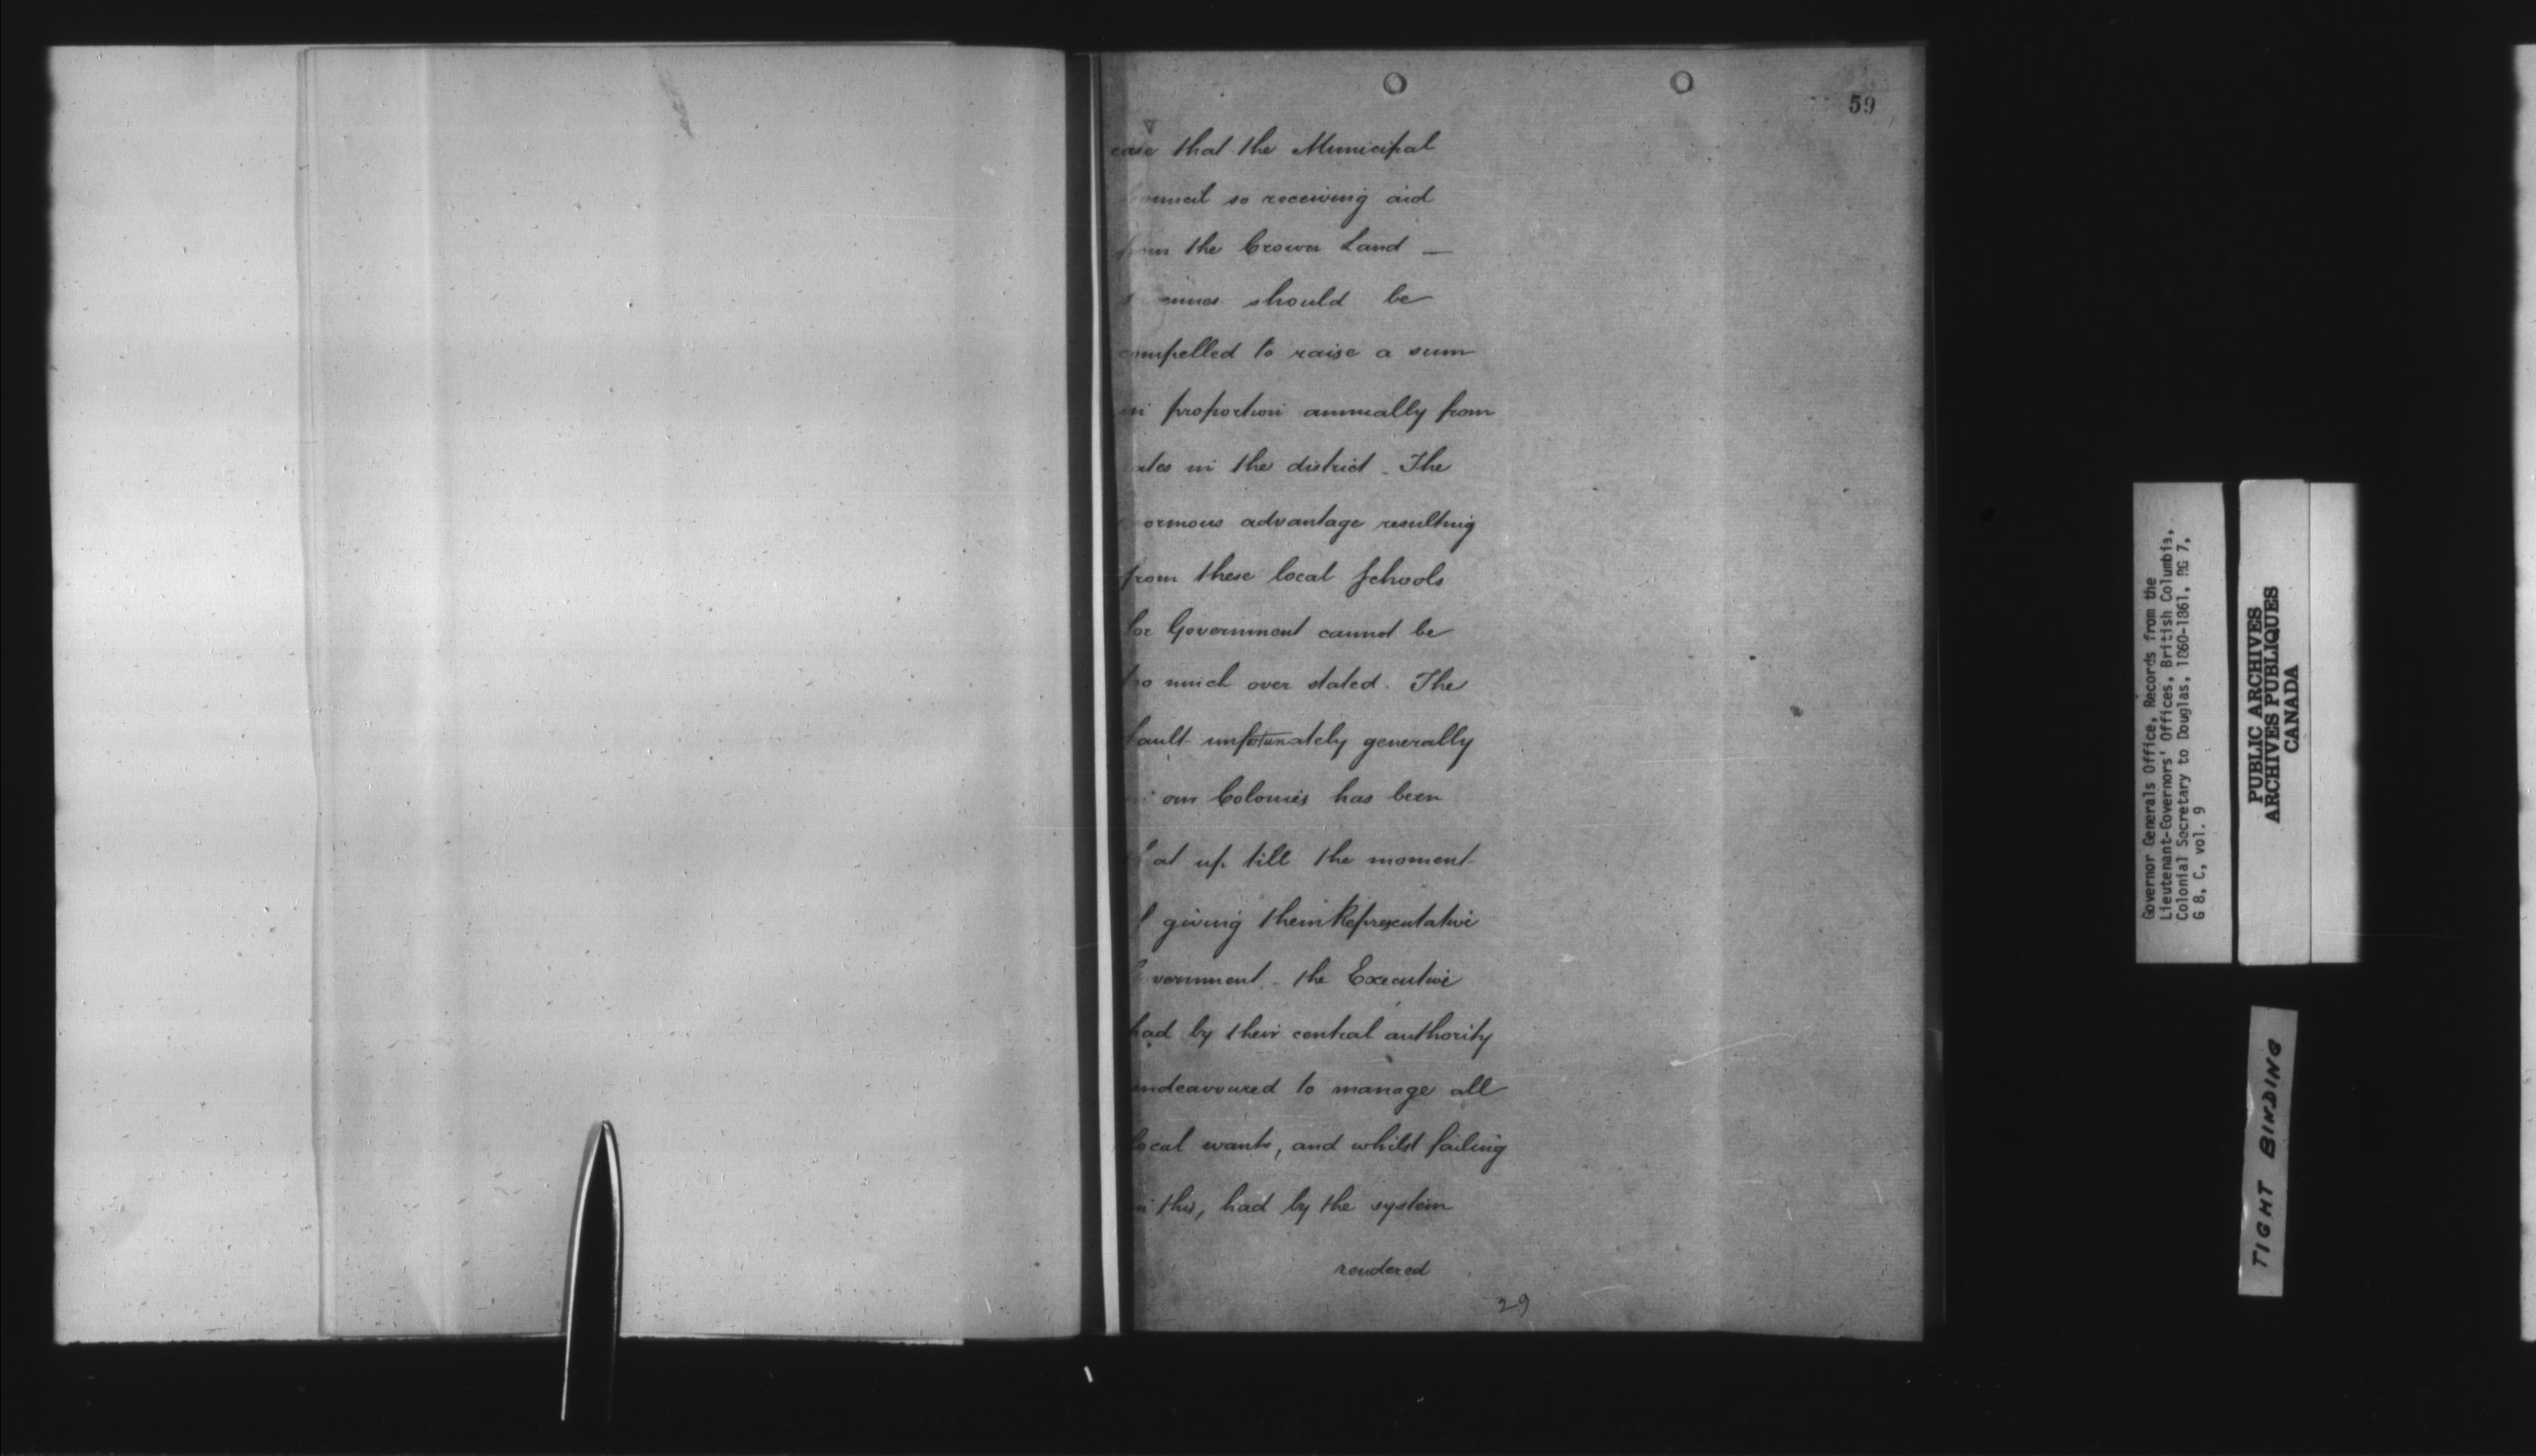 59
case that the Municipal
Council so receiving aid
from the Crown Land —
should be
compelled to raise a sum
in proportion annually from
in the district. The
enormous advantage resulting
from these local Schools
for Government cannot be
too much over stated. The
fault unfortunately generally
in our Colonies has been
that up till the moment
of giving them Representative
Government. the Executive
had by their central authority
endeavoured to manage all
local wants, and whilst failing
in this, had by the system
rendered
29
Governor Generals Office, Records from the
Lieutenant-Governors' Offices, British Columbia,
Colonial Secretary to Douglas, 1860-1861, RG 7,
G 8, C, vol. 9
PUBLIC ARCHIVES
ARCHIVES PUBLIQUES
CANADA
TIGHT BINDING